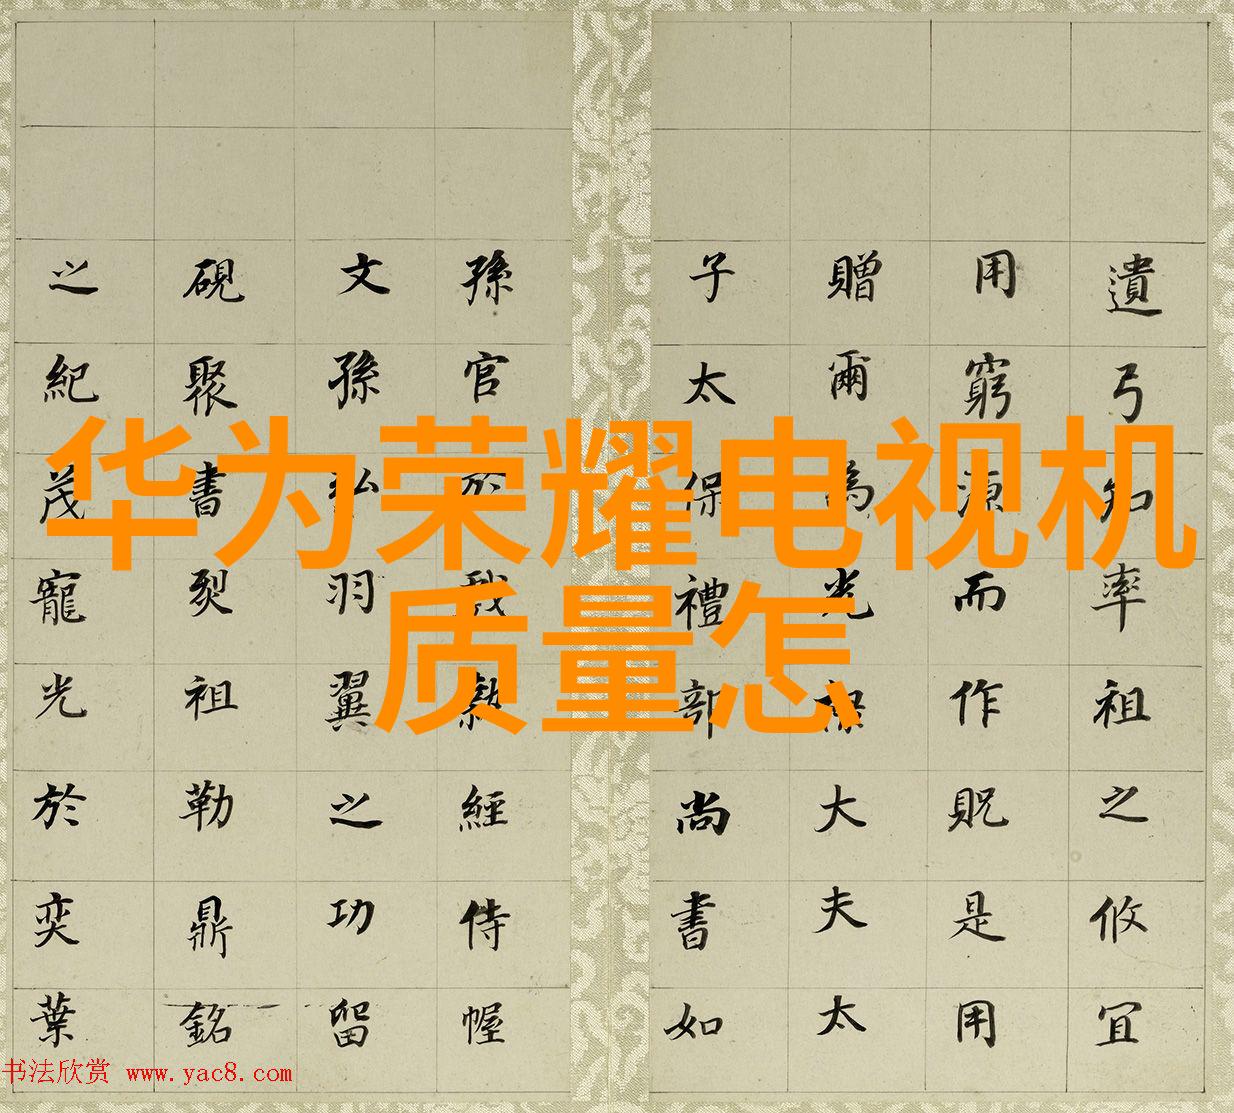 华为荣耀电视机
质量怎
遺弓知率祖之攸宜
用窮源而作貺是用
贈爾為光祿大夫太
子太保禮部尚書如
孫官於經侍幄
文孫弘羽翼之功留
硯聚書烈祖勒鼎銘
之紀茂寵光於奕葉
书法欣赏 www.yac8.com